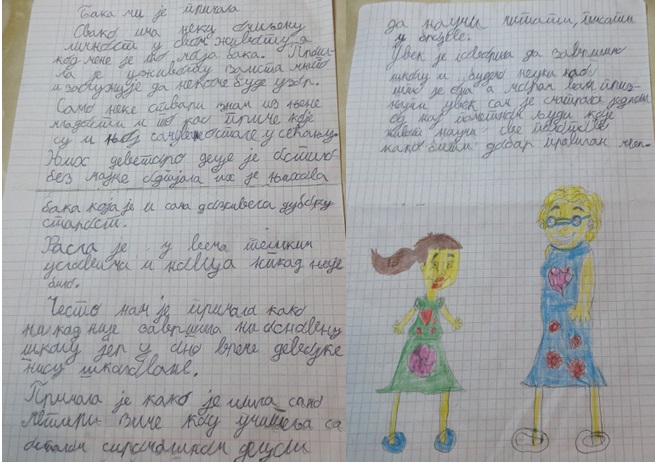 Бака ми је причала
Свако има неку омиљену
личност у свом животу, а
код мене је то моја бака.
ла је у животу заиста много
и заслужује да некоме буде узор.
Само неке ствари знам из њене
младости и то као приче које
су и њој само остале у сећању.
Њих деветоро деце је остало
без мајке одгајала их је њихова
бака која је и сама доживела дубоку
старост.
Расла је у веома тешким
условима и новца никад није
било.
Често нам је причала како
никад није завршила ни основну
школу јер у оно време девојке
нису школоване.
Причала је како је ишла само
четири код учитеља са
осталом сиромашном децом
да научи читати, писати
и бројеве.
Увек је говорила да завршимо
школу и не будемо неуки као
што је она а морам вам приз-
нати увек сам је сматрала једном
од нај паметнијих људи које
живот научи све
како бити добар и правилан